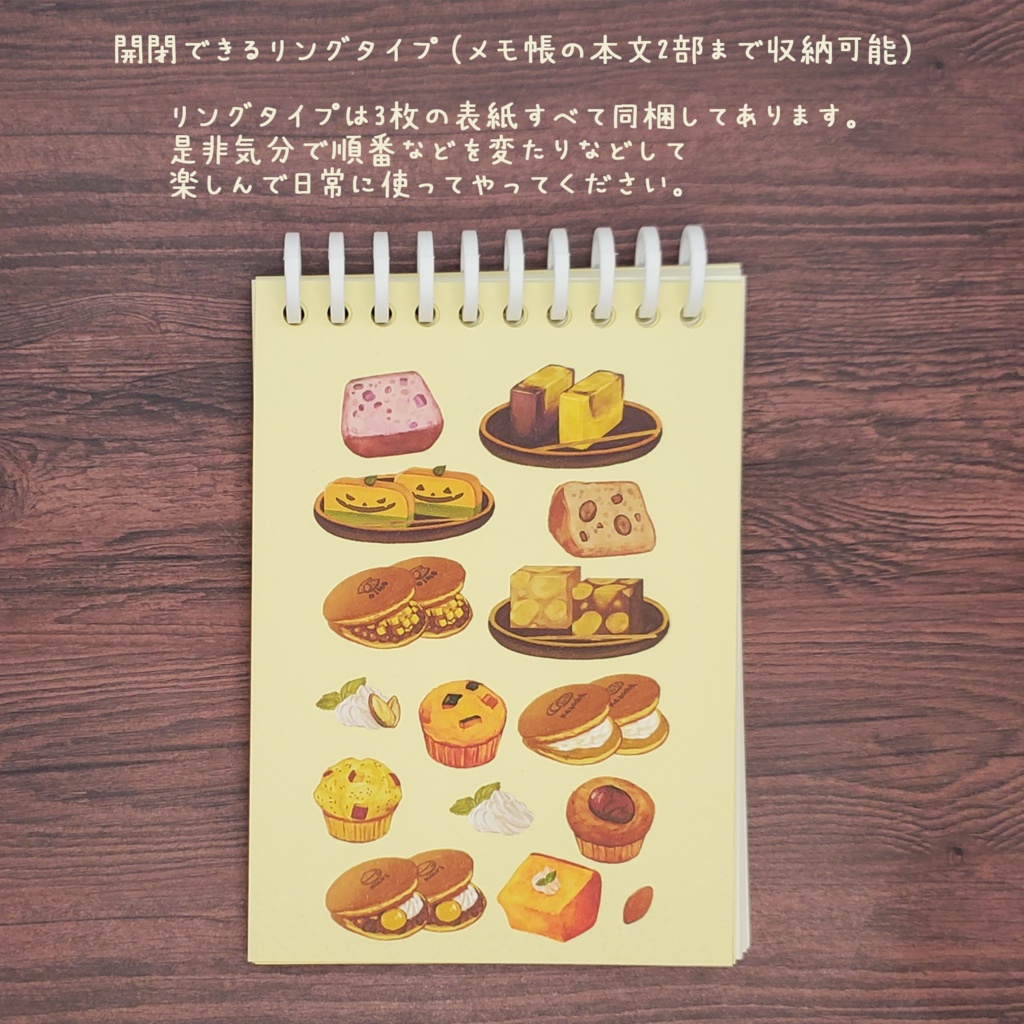 開閉できるリングタイプ(メモ帳の本文2部まで収納可能)
リングタイプは3枚の表紙すべて同梱してあります。
是非気分で順番などを変たりなどして
楽しんで日常に使ってやってください。